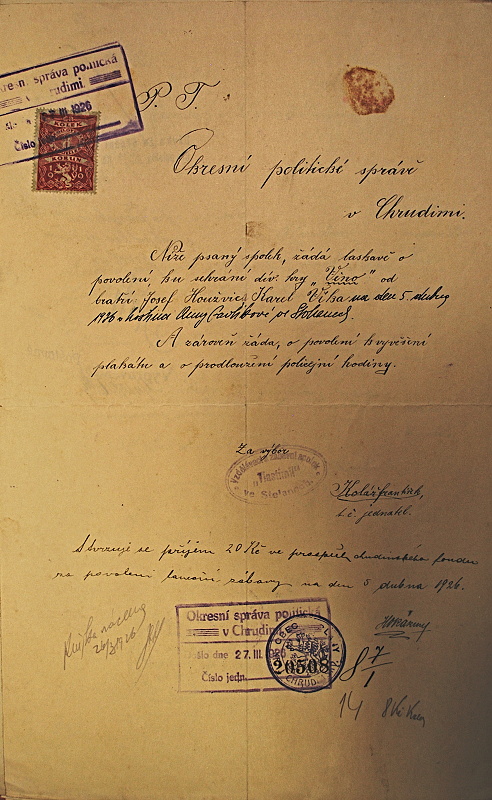 Okresní správa politická
v Chrudimi.
III 1926
Číslo
P. T.
KOLEK
KORUN
Okresní politické správě
v Chrudimi.
Níže psaný spolek, žádá laskavě o
povolení, ku sehrání div. hry „Číno" od
bratří Josef Houžvic, Karel Číka na den 5. dubna
1926 v hostinci Anny ve
A zároveň žádá, o povolení k vyvěšení
plakátu a o prodloužení policejní hodiny.
Za výbor
Vzdělávací spolek
„Tlastimil"
ve
Kolář František,
t. č. jednatel.
Stvrzuje se příjem 20 Kč ve prospěch chudinského fondu
na povolení taneční zábavy na den 5 dubna 1926.
Okresní správa politická
v Chrudimi
došlo dne 27. III. 1926
Číslo jedn.
20508
CHRUD
26/3 1926
8 7/1
14 8 Kč